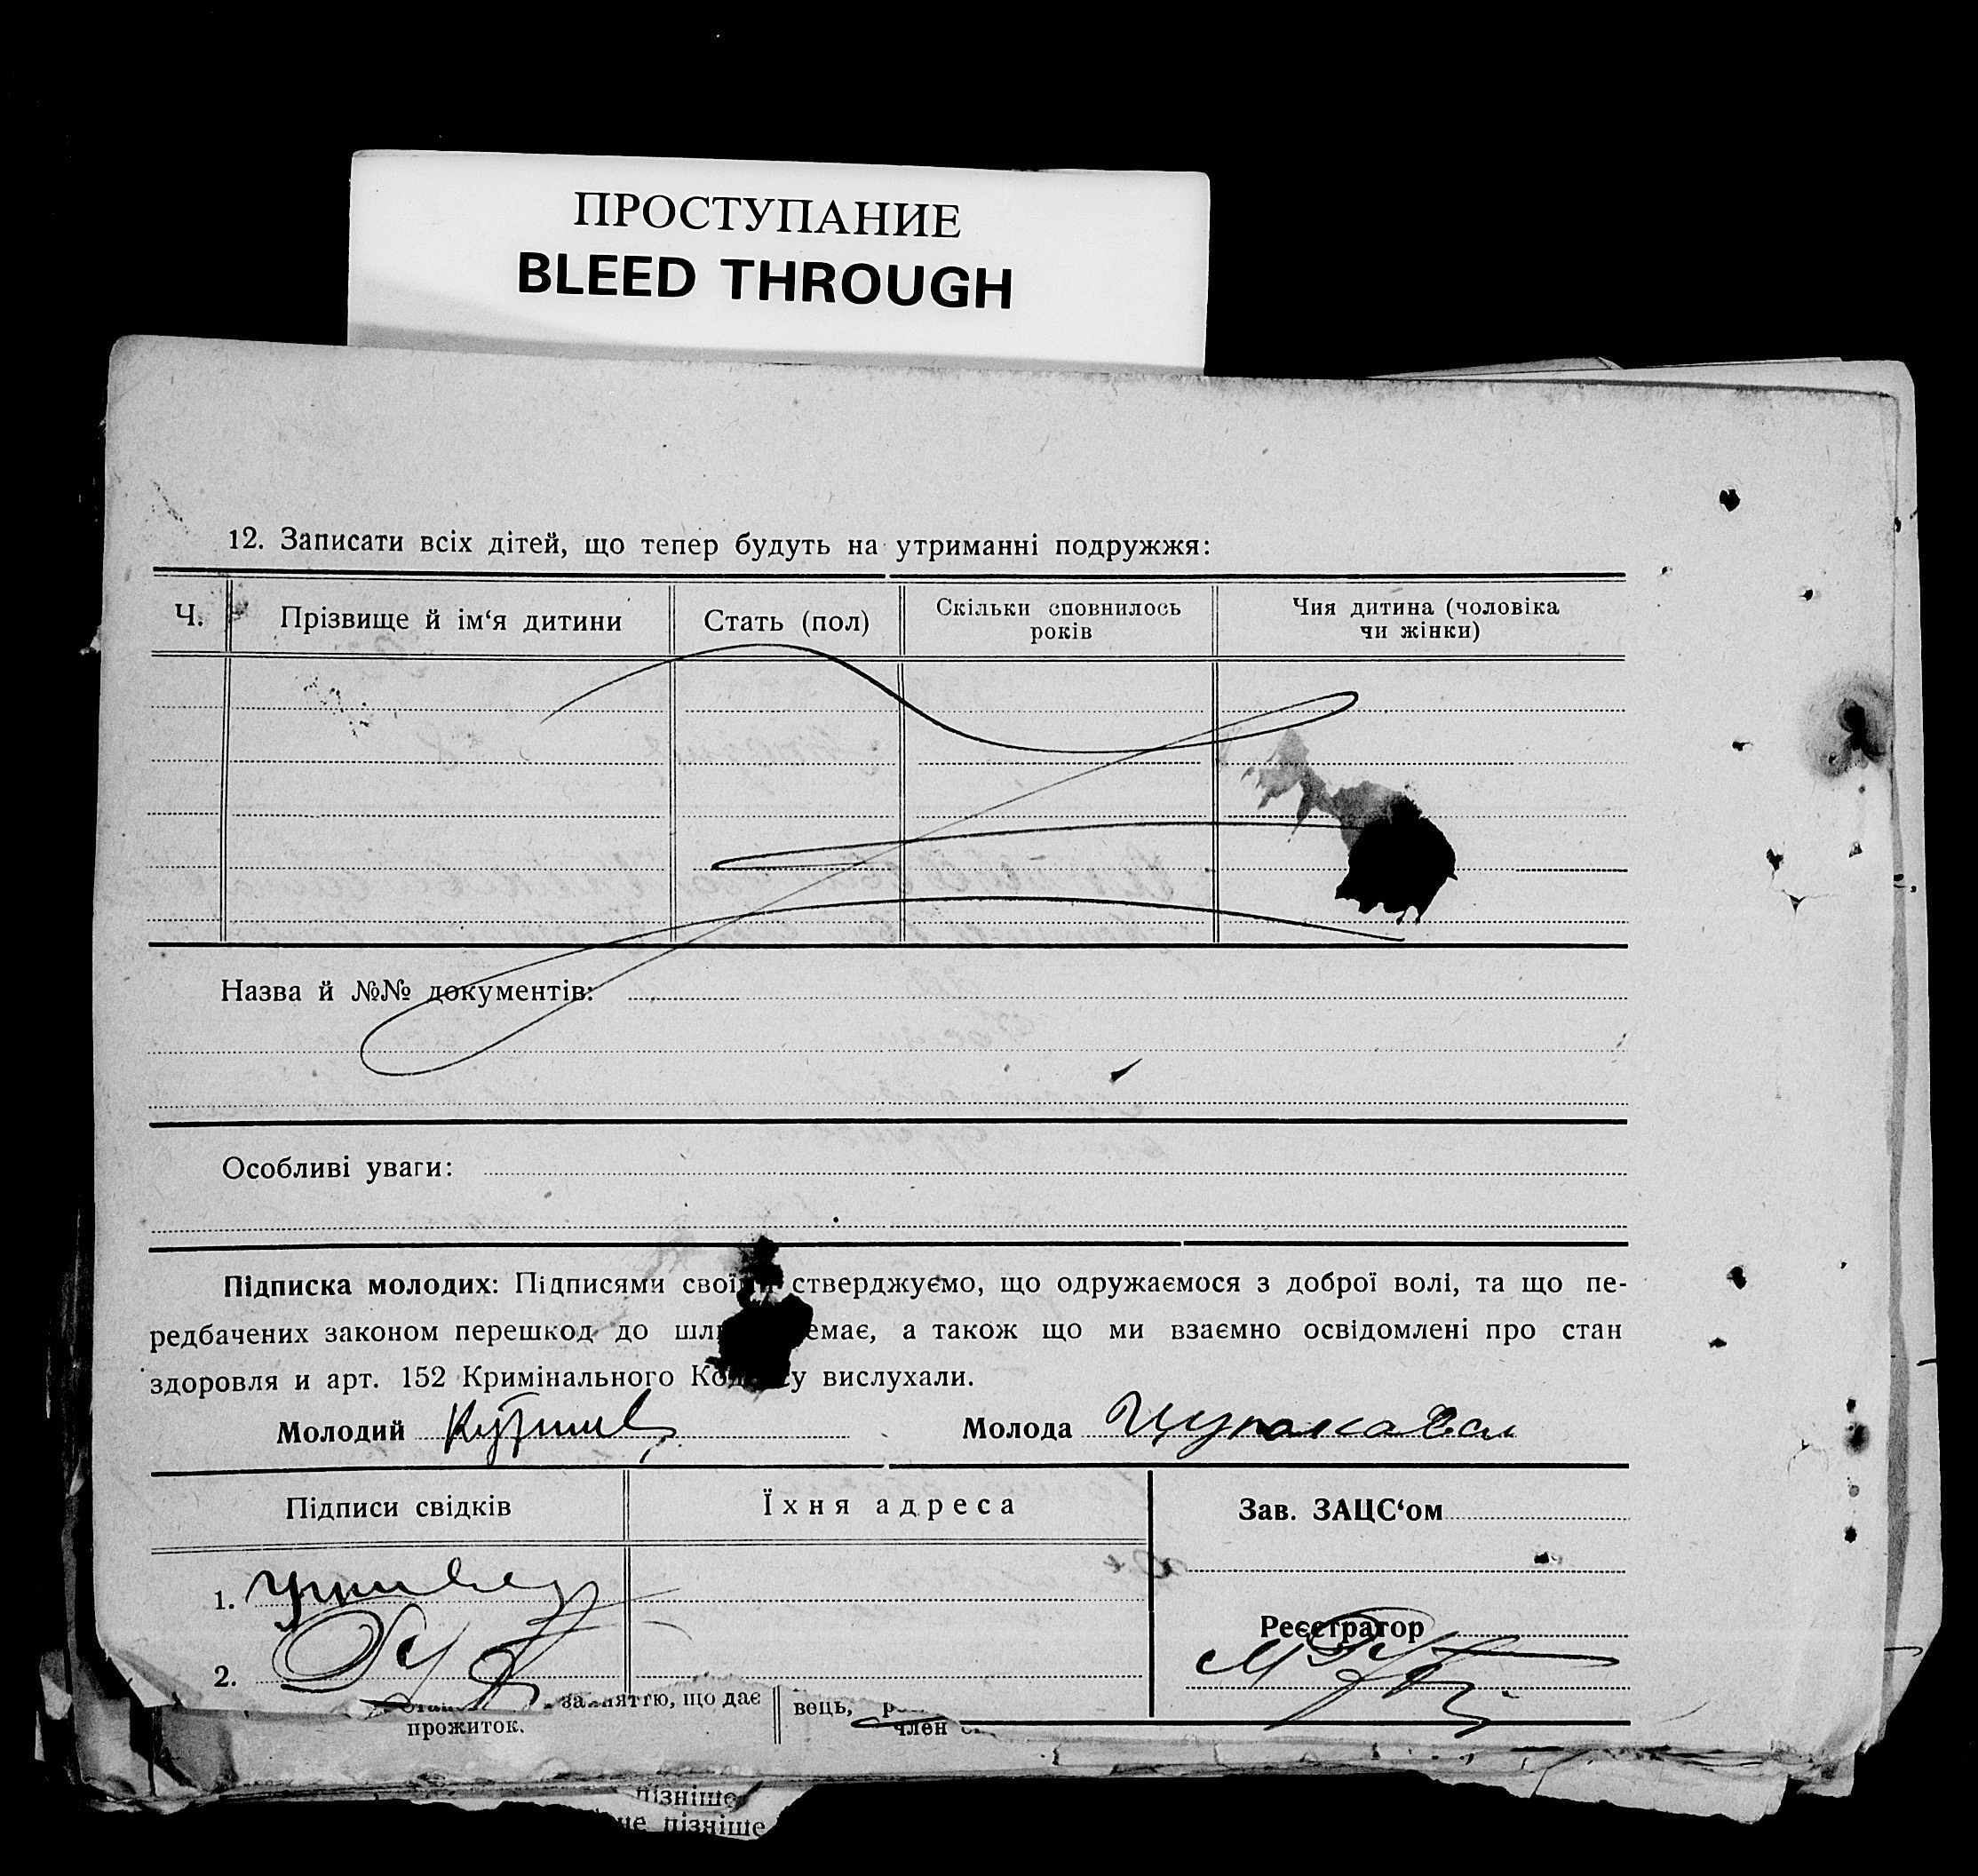 ПРОСТУПАНИЕ
BLEED THROUGH
12. Записати всіх дітей, що тепер будуть на утриманні подружжя:
Ч. Прізвище й ім‘я дитини Стать (пол) Скільки сповнилось років Чия дитина (чоловіка чи жінки)
Назва й №№ документів:
Особливі уваги:
Підписка молодих: Підписями стверджуємо, що одружаємося з доброї волі, та що пе-
редбачених законом перешкод до а також що ми взаємно освідомлені про стан
здоровля и арт. 152 Кримінального вислухали.
Молодий Молода
Підписи свідків Їхня адреса Зав. ЗАЦС‘ом
1.
Реєстратор
2.
що дає вець,
прожиток. член
пізніше
не пізніше